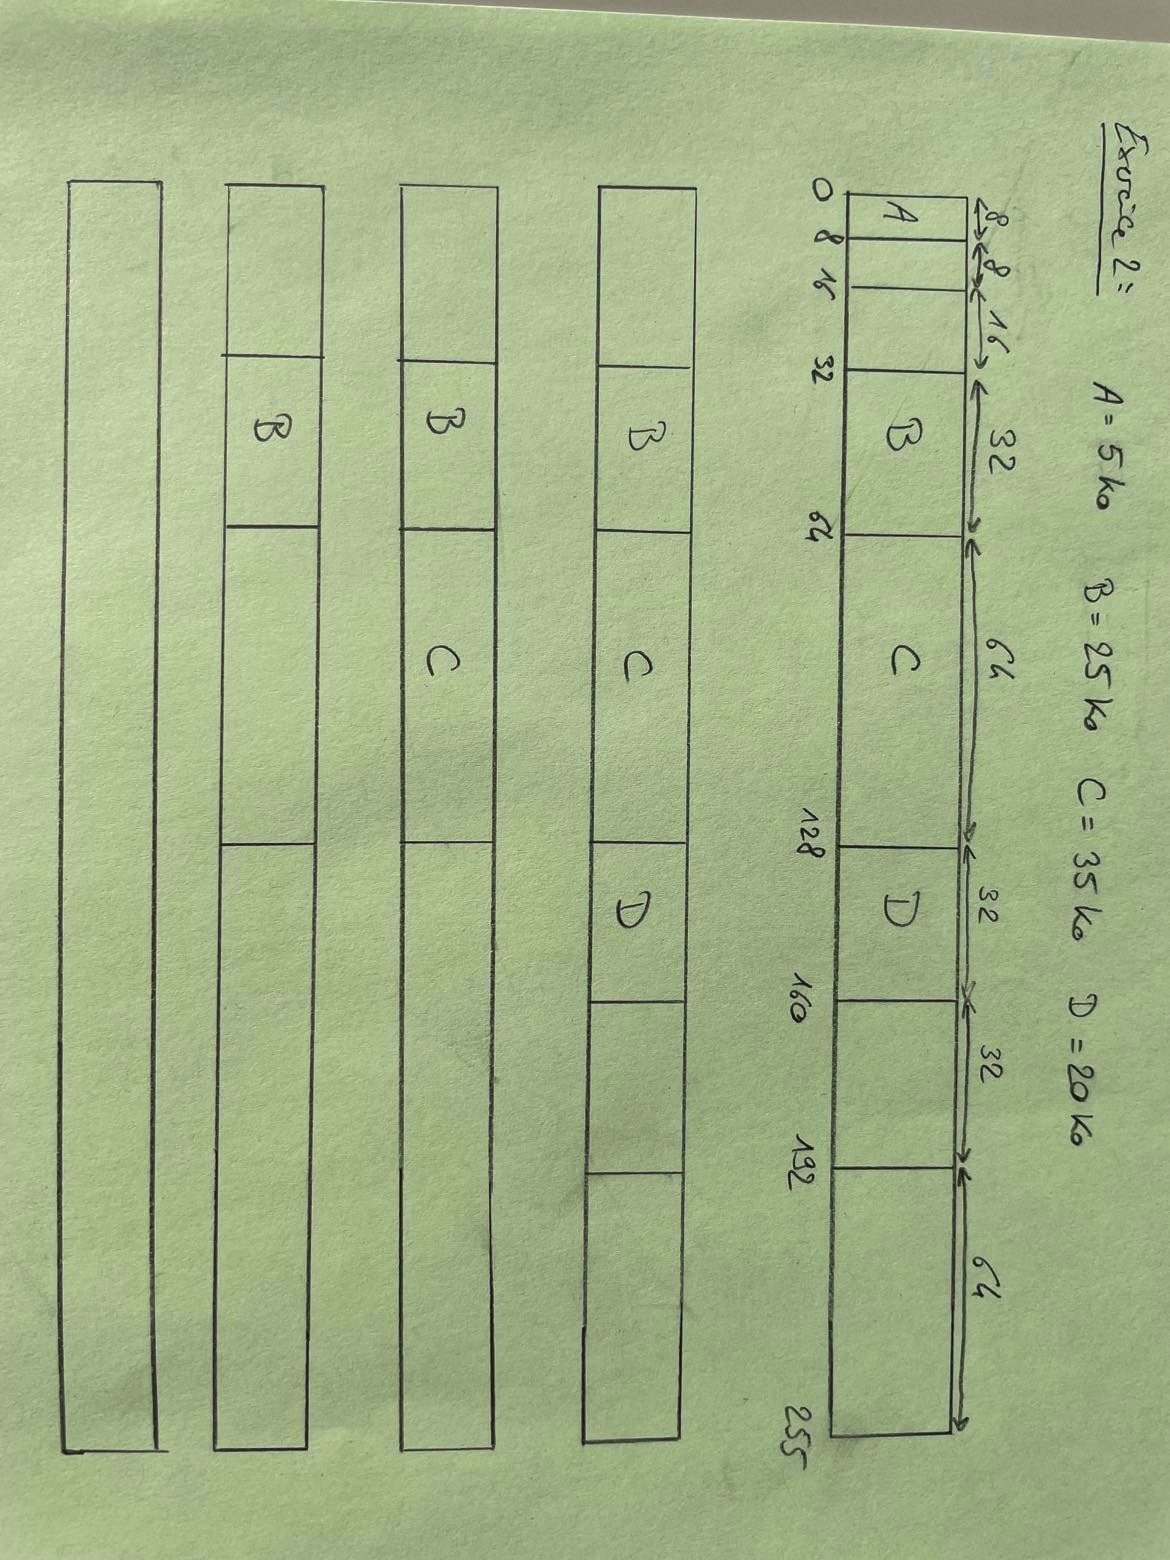 Exercice 2: A = 5 ko B = 25 ko C = 35 ko D = 20 ko
8 8 16 32 64 32 32 64
A B C D
0 8 16 32 64 128 160 192 255
B C D
B C
B